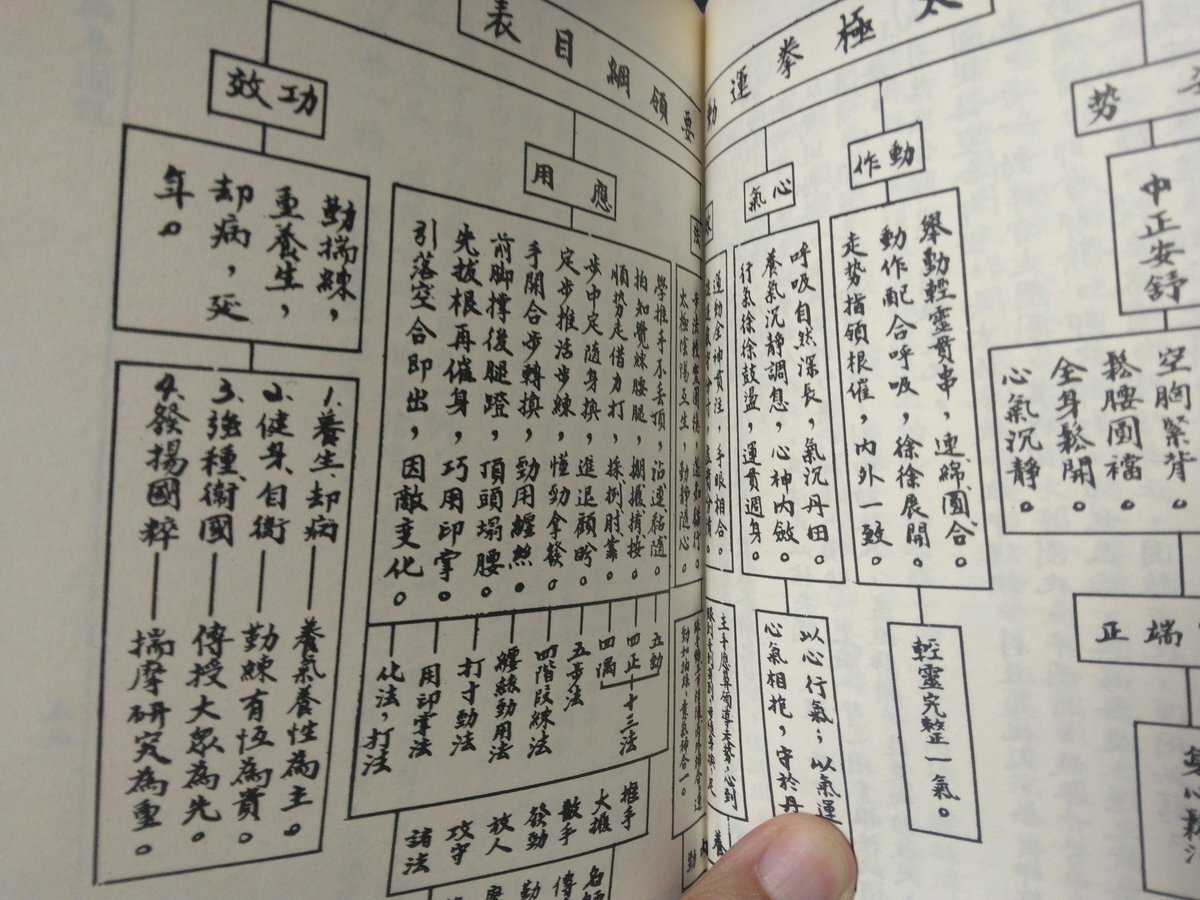 太極拳運動要領綱目表
勢
中正安舒
空胸緊背。
鬆腰圓襠
全身鬆開
心氣沉靜。
端正
動作
舉動輕靈貫串，連綿圓合。
動作配合呼吸，徐徐展開。
走势指領根催，內外一致。
輕靈完整一氣。
心氣
呼吸自然深長，氣沉丹田。
養氣沉靜調息，心神內斂。
行氣徐徐鼓盪，運貫週身。
以心行氣；以氣運
心氣相抱，守於丹
運動全神貫注，手眼相合。
太極陰陽互生，動靜隨心。
應用
學推手不丟頂，沾連黏隨。
拍知覺妹腰腿，掤攦擠按。
順势走借力打，採挒肘靠。
步中定隨身換，進退顧盼。
定步推活步練，懂勁拿發。
手開合步轉換，勁用纏絲。
前脚撐後腿蹬，頂頭塌腰。
先拔根再催身，巧用印掌。
引落空合即出，因敵变化。
五動
四正
四隅
十三法
五步法
四階段練法
纏絲勁用法
打寸勁法
用印掌法
化法，打法
推手
大攦
散手
發勁
放人
攻守
諸法
功效
勤揣練，
重養生，
却病，延
年。
1.養生、却病——養氣養性為主。
2.健身、自衛——勤練有恆為貴。
3.強種、衛國——傳授大眾為先。
4.發揚國粹——揣摩研究為重。